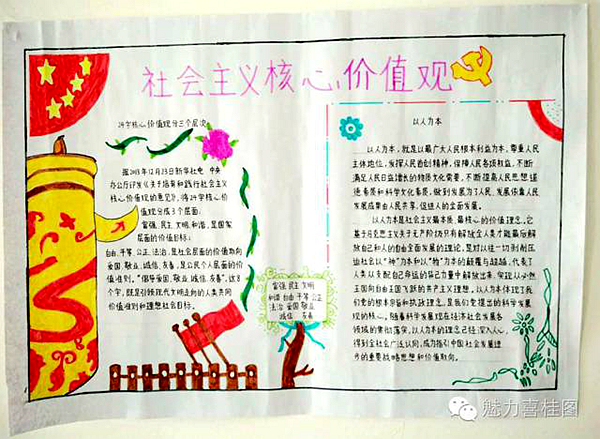 社会主义核心价值观
24字核心价值观分三个层次
据2013年12月23日新华社电 中央
办公厅印发《关于培育和践行社会主义
核心价值观的意见》,将24字核心价
值观分成3个层面:
富强、民主、文明、和谐,是国家
层面的价值目标;
自由、平等、公正、法治,是社会层面的价值取向
爱国、敬业、诚信、友善,是公民个人层面的价
值准则。“倡导爱国、敬业、诚信、友善”,这8
个字,既是引领现代文明走向的人类共同
价值准则和理想社会目标。
富强 民主 文明
和谐 自由 平等 公正
法治 爱国 敬业
诚信 友善
以人为本
以人为本,就是以最广大人民根本利益为本,尊重人民
主体地位,发挥人民首创精神,保障人民各项权益,不断
满足人民日益增长的物质文化需要,不断提高人民思想道
德素质和科学文化素质,做到发展为了人民、发展依靠人民
发展成果由人民共享,促进人的全面发展。
以人为本是社会主义最本质、最核心的价值理念,它
基于马克思主义关于无产阶级只有解放全人类才能最后解
放自己和人的自由全面发展的理论,是对以往一切剥削压
迫社会以“神”为本和以“物”为本的颠覆与超越,代表了
人类以支配自己命运的姿态力量中解放出来,实现以必然
王国向自由王国飞跃的共产主义理想。以人为本体现了我
们党的根本宗旨和执政理念,是我们党提出的科学发展
观的核心。随着科学发展观在经济社会发展各
领域的贯彻落实,以人为本的理念已经深入人心,
得到全社会广泛认同,成为指引中国社会发展进
步的重要战略思想和价值取向。
魅力喜桂图